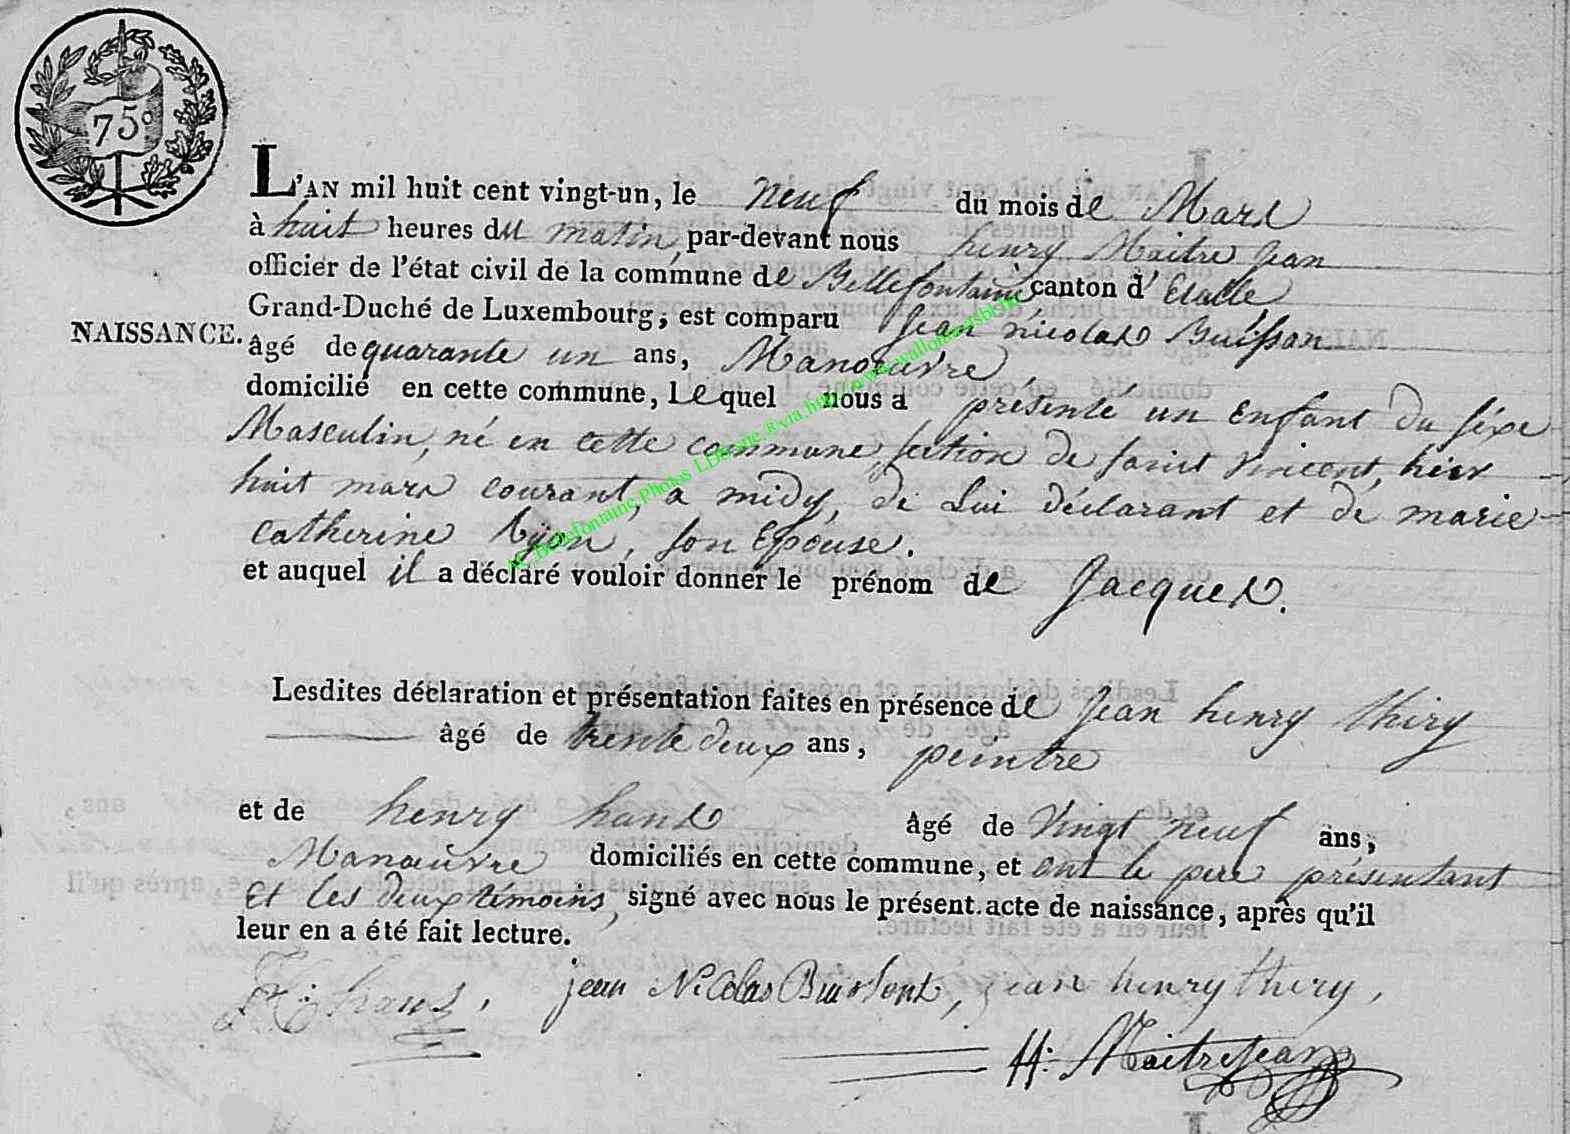 75c
L'AN mil huit cent vingt-un, le neuf du mois de Mars
à huit heures du matin, par-devant nous henry Maitre jean
officier de l'état civil de la commune de Bellefontaine canton d'Etalle
Grand-Duché de Luxembourg, est comparu Jean nicolas Buisson
NAISSANCE.
âgé de quarante un ans, Manoeuvre,
domicilié en cette commune, Lequel nous a présenté un Enfant du séxe
Masculin, né en cette commune, section de saint vincent, hier
huit mars courant, a midy, de Lui déclarant et de marie
catherine , son Epouse.
et auquel il a déclaré vouloir donner le prénom de Jacques.
Lesdites déclaration et présentation faites en présence de Jean henry thiry
âgé de trente deux ans, peintre
et de henry hans âgé de Vingt neuf ans,
Manoeuvre domiciliés en cette commune, et ont le pere présentant
et les deux témoins, signé avec nous le présent acte de naissance, après qu'il
leur en a été fait lecture.
H: hans, jean Nicolas , jean henry thiry,
H: Maitrejean
AC Bellefontaine Photos